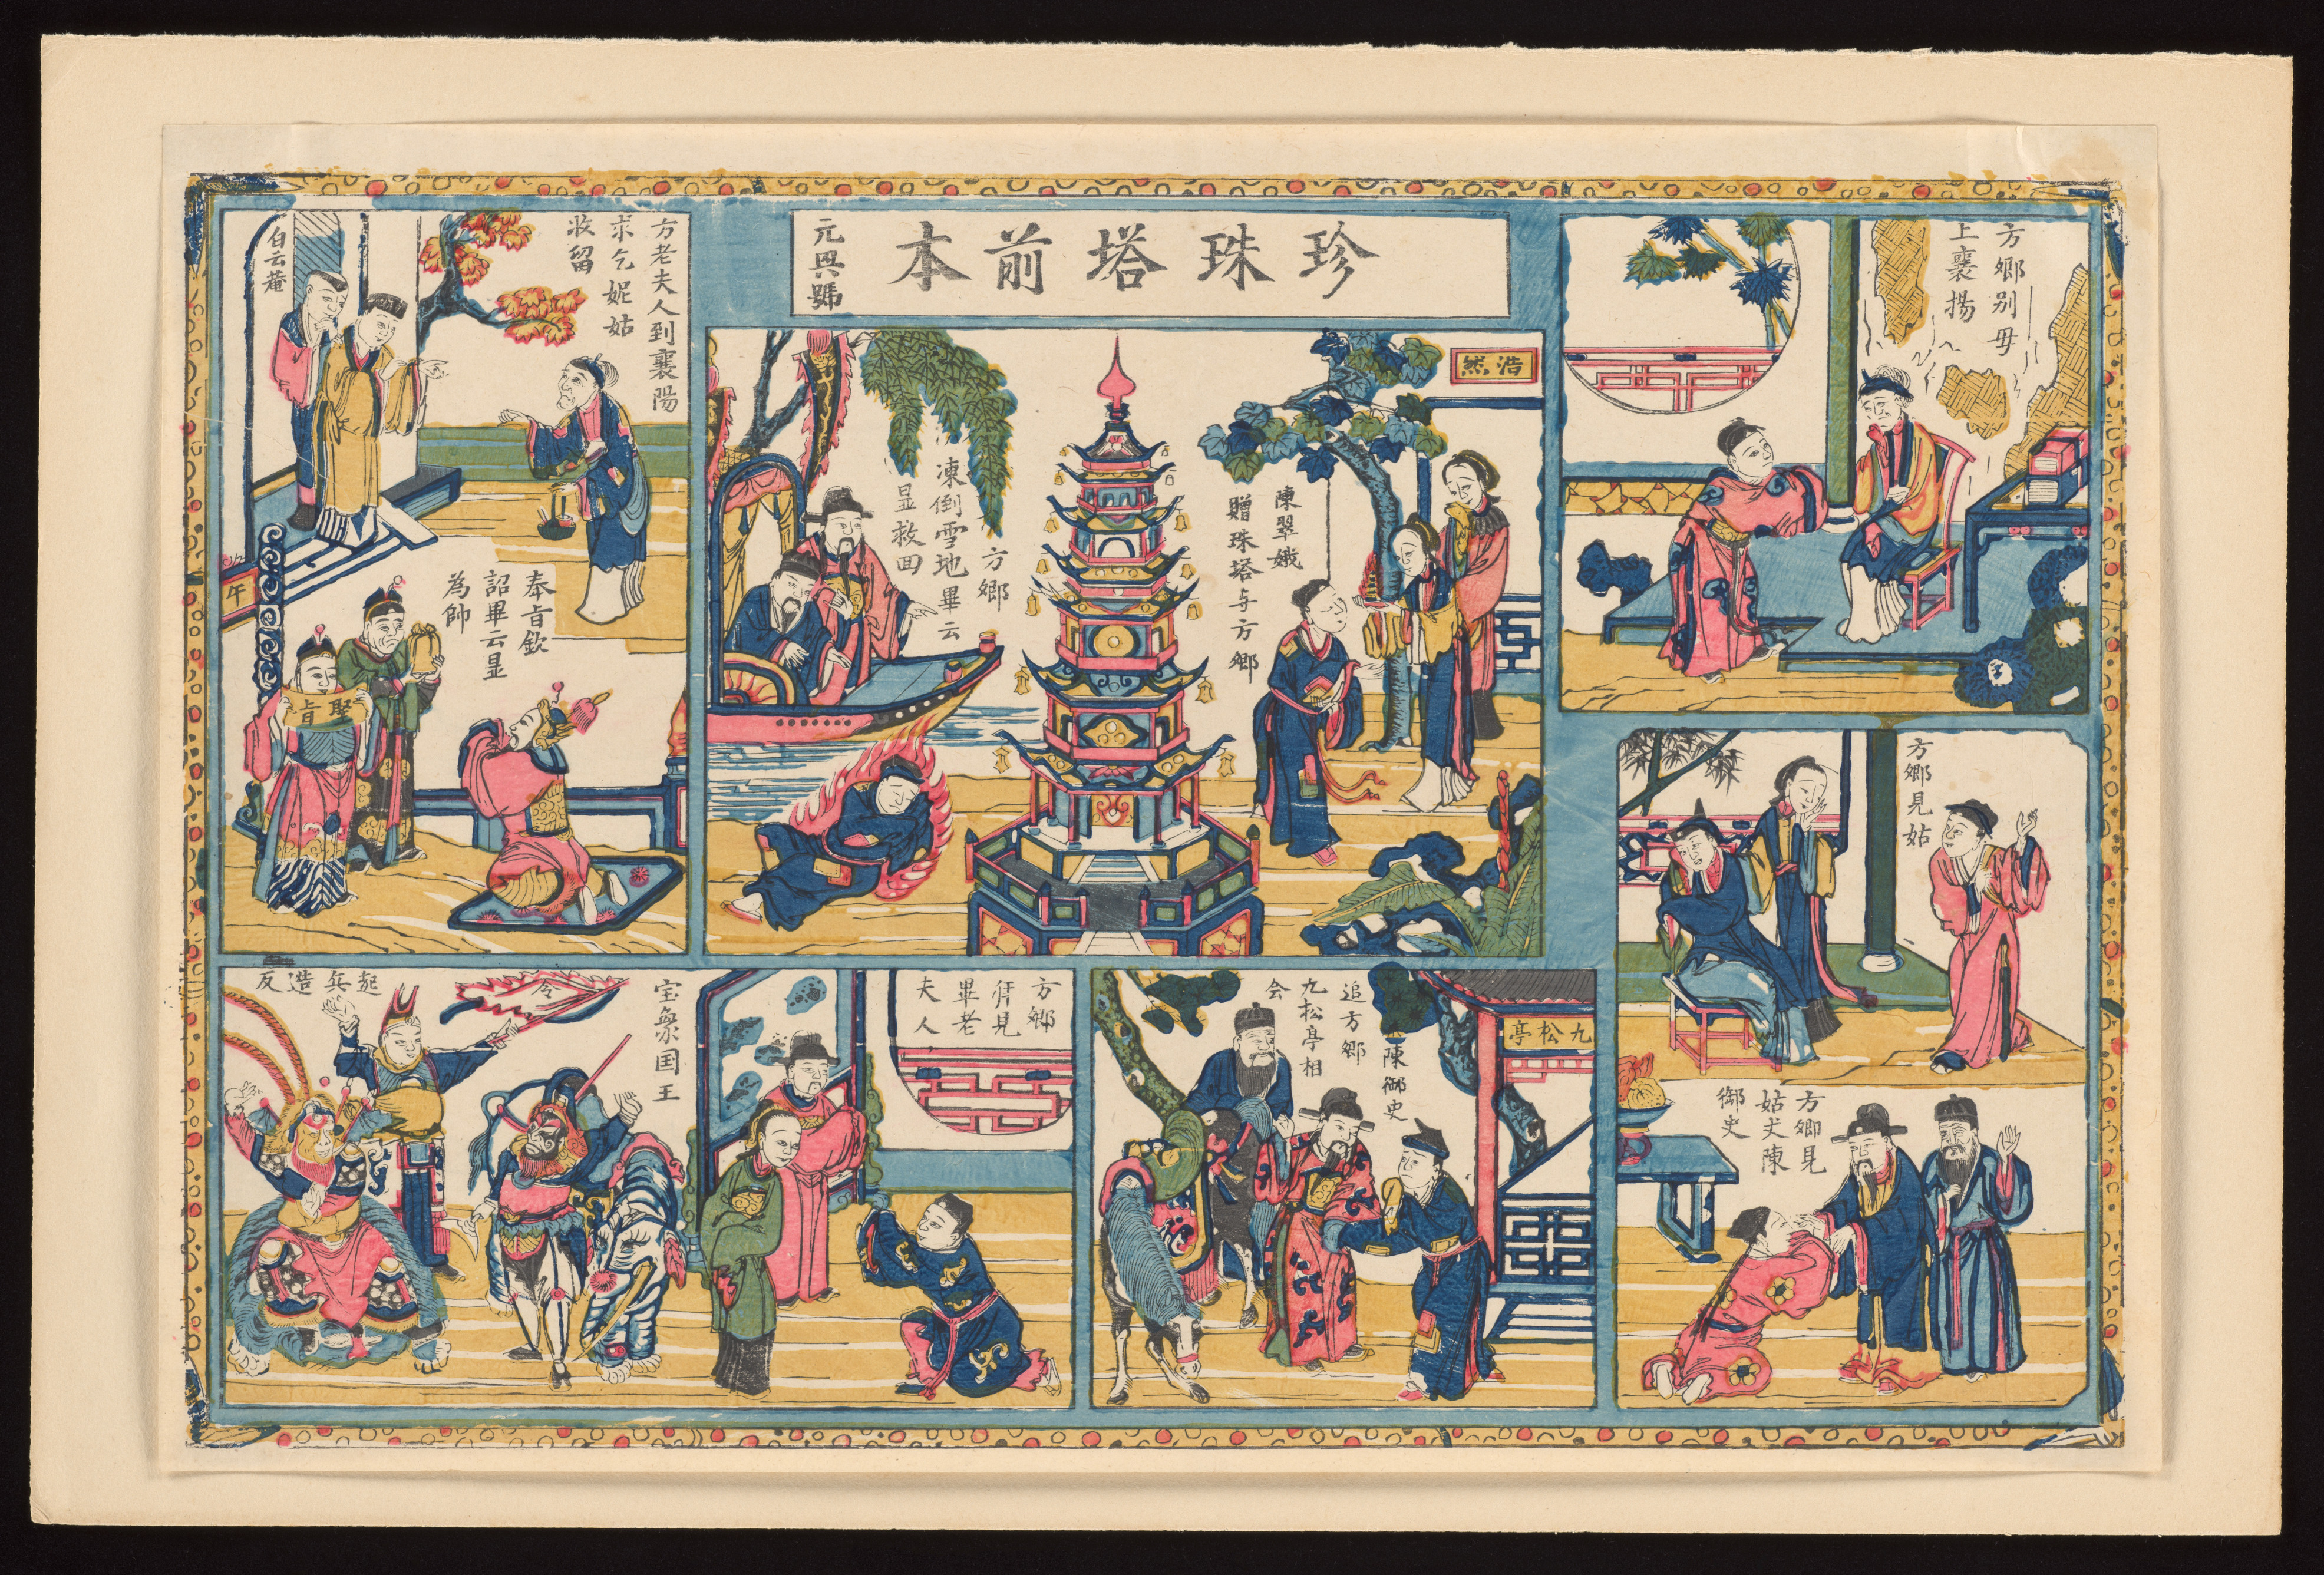 珍珠塔前本
元興號
方鄉别毋
上襄揚
方鄉見姑
方鄉見
姑丈陳
御史
浩然
陳翠娥
贈珠塔与方鄉
方鄉
凍倒雪地畢云
显救回
九松亭
陳御史
追方鄉
九松亭相
会
方鄉
拜見
畢老
夫人
宝象国王
起兵造反
令
方老夫人到襄陽
求乞妮姑
收留
白云菴
奉旨欽
詔畢云显
為帥
聖旨
午